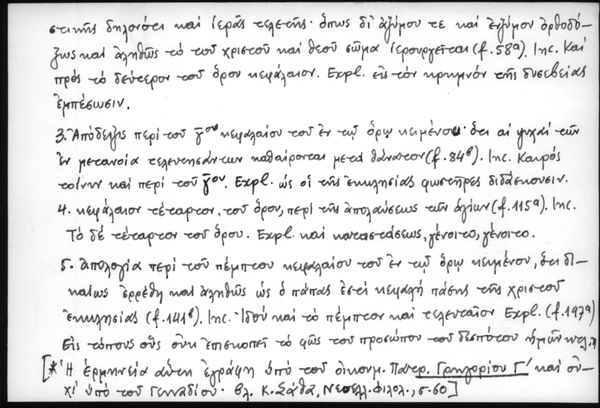 στικῆς δηλονότι καὶ ἱερᾶς τελετῆς· ὅπως δι' ἀζύμου τε καὶ ἐζύμου ὀρθοδό-
ξως καὶ ἀληθῶς τὸ τοῦ χριστοῦ καὶ θεοῦ σῶμα ἱερουργεῖται (f. 58ᵃ). Inc. Καὶ
πρὸς τὸ δεύτερον τοῦ ὅρου κεφάλαιον. Expl. εἰς τὸν κρημνὸν τῆς δυσεβείας
ἐμπέσωσιν.
3. Ἀπόδειξις περὶ τοῦ γ̄ου κεφαλαίου τοῦ ἐν τῷ ὅρῳ κειμένου· ὅτι αἱ ψυχαὶ τῶν
ἐν μετανοίᾳ τελευτησάντων καθαίρονται μετὰ θάνατον (f. 84ᵇ). Inc. Καιρός
τοίνυν καὶ περὶ τοῦ γ̄ου. Expl. ὡς οἱ τῆς ἐκκλησίας φωστῆρες διδάσκουσιν.
4. κεφάλαιον τέταρτον, τοῦ ὅρου, περὶ τῆς ἀπολαύσεως τῶν ἁγίων (f. 115ᵃ). Inc.
Τὸ δὲ τέταρτον τοῦ ὅρου. Expl. καὶ καταστάσεως, γένοιτο, γένοιτο.
5. ἀπολογία περὶ τοῦ πέμπτου κεφαλαίου τοῦ ἐν τῷ ὅρῳ κειμένου, ὅτι δι-
καίως ἐρρέθη καὶ ἀληθῶς ὡς ὁ πάπας ἐστὶ κεφαλὴ πάσης τῆς χριστοῦ
ἐκκλησίας (f. 141ᵇ). Inc. Ἰδοὺ καὶ τὸ πέμπτον καὶ τελευταῖον Expl. (f. 197ᵃ)
Εἰς τόπους οὓς οὐκ ἐπισκοπεῖ τὸ φῶς τοῦ προσώπου τοῦ δεσπότου ἡμῶν
[*Ἡ ἑρμηνεία αὕτη ἐγράφη ὑπὸ τοῦ οἰκουμ. Πατρ. Γρηγορίου Γ΄ καὶ οὐ-
χὶ ὑπὸ τοῦ Γενναδίου· βλ. Κ. Σάθα, Νεοελλ. Φιλολ., σ. 60]